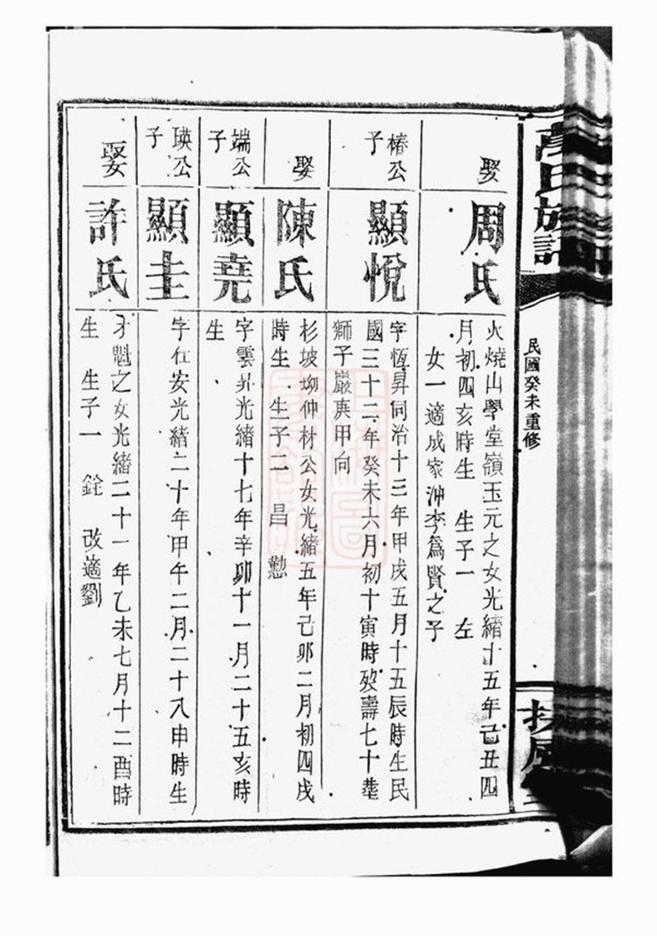 氏族譜
民國癸未重修
娶
周氏
火燒山學堂嶺玉元之女光緒十五年己丑四
月初四亥時生 生子一 左
女一適成家沖李為賢之子
椿公子
顯悅
字恆昇同治十三年甲戌五月十五辰時生民
國三十二年癸未六月初十寅時歿壽七十葬
獅子巖庚甲向
娶
陳氏
杉坡坳仲材公女光緒五年己卯二月初四戌
時生 生子二 昌 懃
端公子
顯堯
字雲昇光緒十七年辛卯十一月二十五亥時
生
瑛公子
顯圭
字在安光緒二十年甲午二月二十八申時生
娶
許氏
才魁之女光緒二十一年乙未七月十二酉時
生 生子一 銓 改適劉